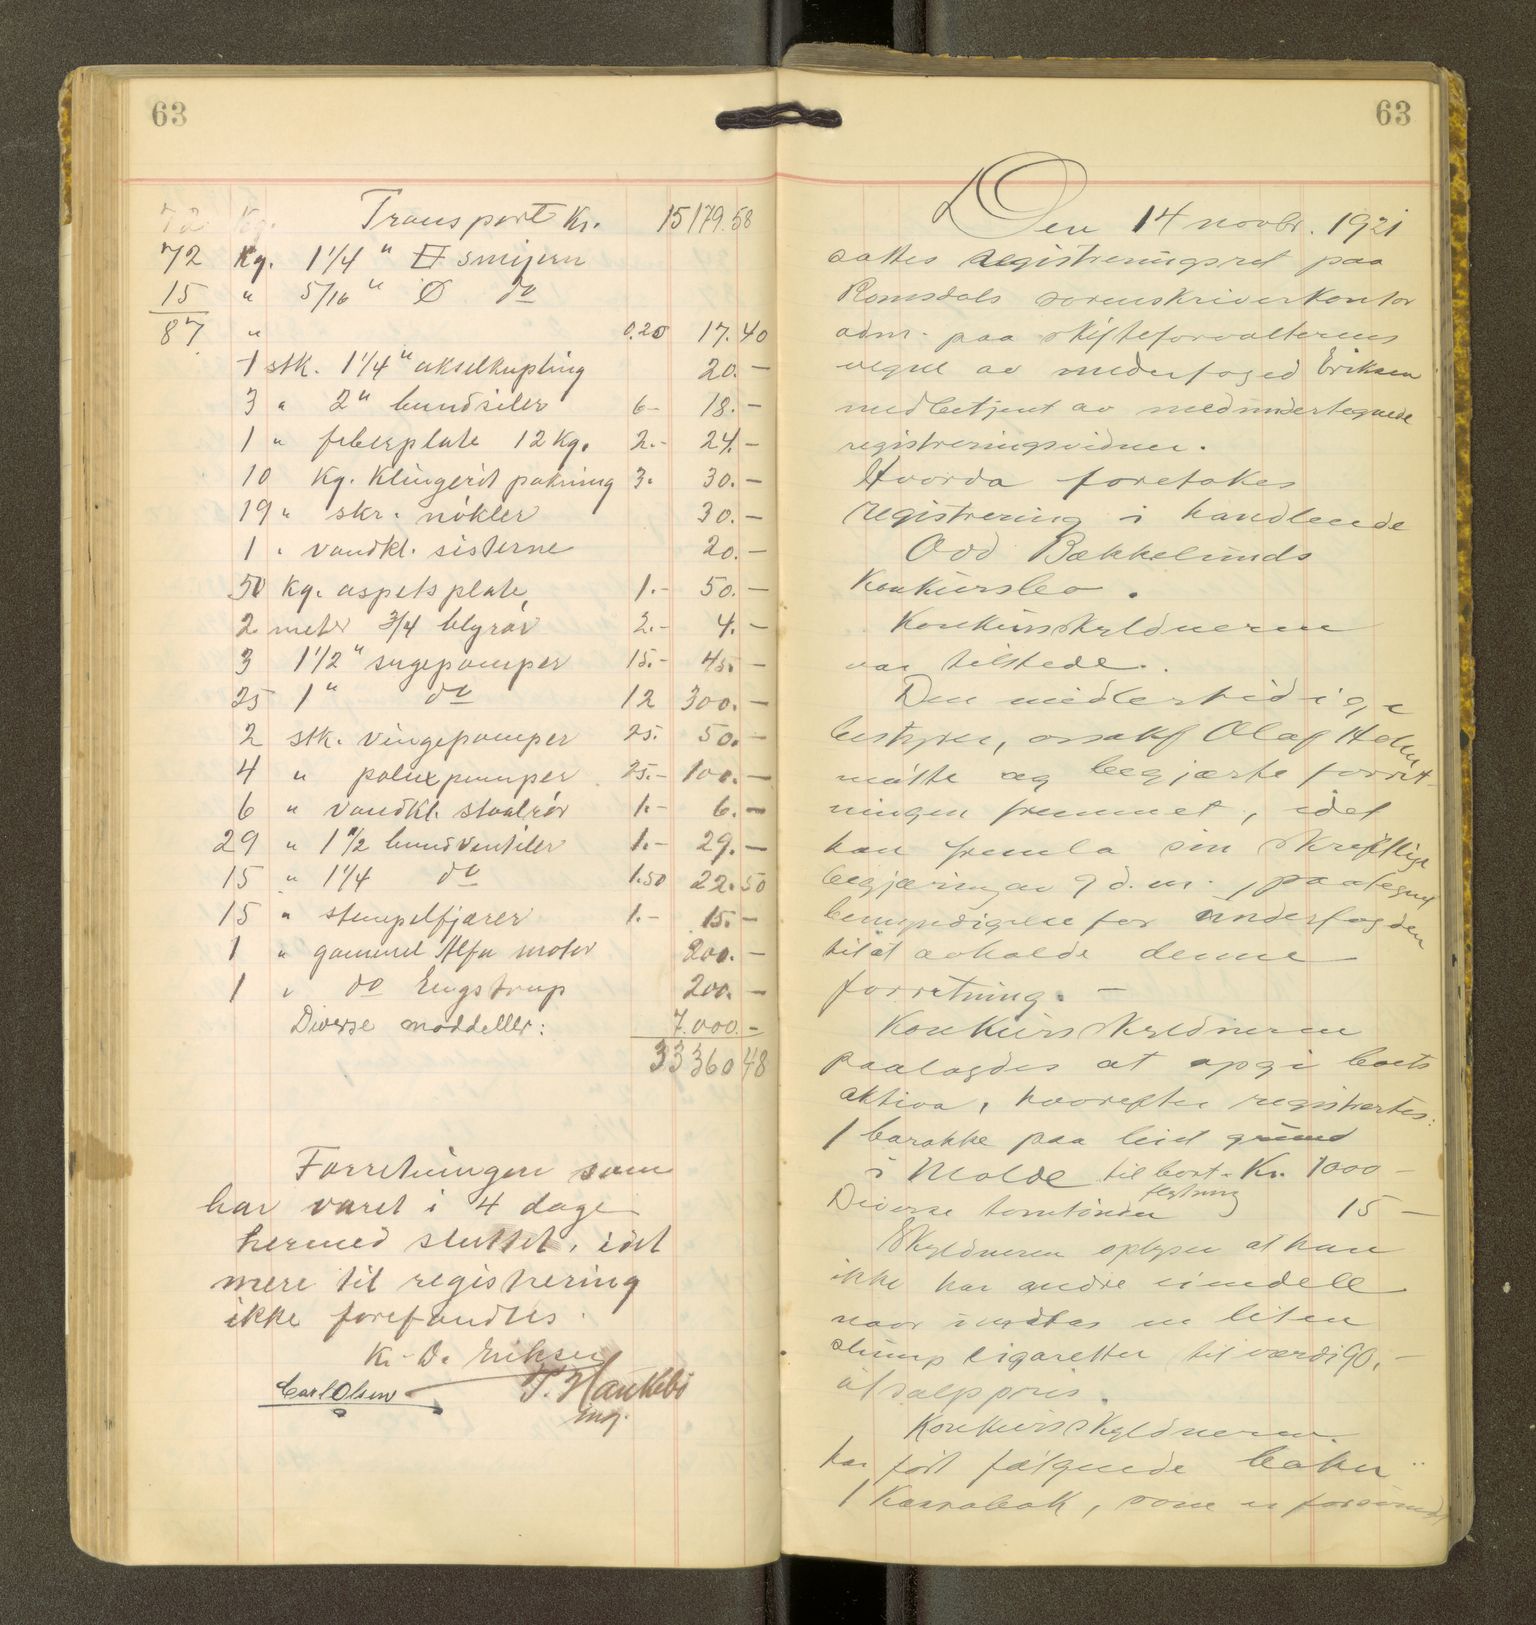 63
Transport Kr. 15179.58
72 Kg. 1 1/4 " smijern
15 " 5/16 " Ø do
87 " 0.20 17.40
1 stk. 1 1/4 " akselkupling 20.-
3 " 2" bundsiler 6- 18.-
1 " fiberplate 12 Kg. 2.- 24.-
10 Kg. Klingerit pakning 3. 30.-
19 " skr. nökler 30.-
1 " vandkl. sisterne 20.-
50 Kg. aspetsplate 1.- 50.-
2 meter 3/4 blyrör 2.- 4.-
3 1 1/2 " sugepumper 15.- 45.-
25 1 " do 12 300.-
2 stk. vingepumper 25. 50.-
4 " poluxpumper 25.- 100.-
6 " vandkl. staalrör 1.- 6.-
29 " 1 1/2 bundventiler 1.- 29.-
15 " 1 1/4 do 1.50 22.50
15 " stempelfjærer 1.- 15.-
1 " gammel Alfa motor 200.-
1 " do Engstrup 200.-
Diverse moddeller: 7.000.-
33360 48
Forretningen som
har varet i 4 dage
hermed sluttet, idet
mere til registrering
ikke forefandtes.
Kr. D. Eriksen
Carl Olsen T. Haukebö
ing.
63
Den 14 novbr. 1921
sattes registreringsret paa
Romsdals sorenskriverkontor
adm. paa skifteforvalterens
vegne av underfoged Eriksen
med betjent av medundertegnede
registreringsvidner.
Hvorda foretokes
registrering i handlende
Odd Bækkelunds
Konkursbo.
Konkursskyldneren
var tilstede.
Den midlertidige
bestyrer, ossakf Olaf Holm
møtte og begjærte forret-
ningen fremmet, idet
han fremla sin skriftlige
begjæring av 9 d.m., paategnet
bemyndigelse for underfogden
til at avholde denne
forretning. -
Konkursskyldneren
paalagdes at opgi boets
aktiva, hvorefter registrertes:
1 barakke paa leiet grund
i Molde til bort- Kr. 1000 -
flytning
Diverse tomtönder 15 -
Skyldneren oplyser at han
ikke har andre eiendele
naar undtas en liten
slump cigaretter til værdi 90,-
utsalgspris.
Konkursskyldneren
har fört fölgende böker
1 Kassabok, som er forsömt